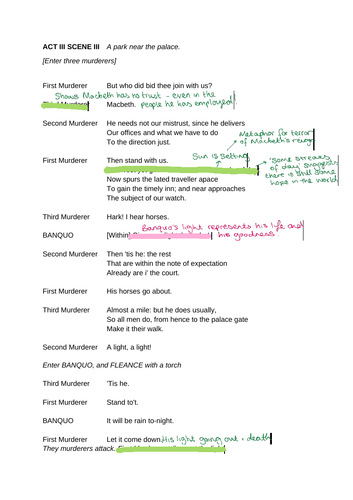 ACT III SCENE III A park near the palace.
[Enter three murderers]
First Murderer But who did bid thee join with us?
Shows Macbeth has no trust - even in the
Macbeth. people he has employed!
Second Murderer He needs not our mistrust, since he delivers
Our offices and what we have to do
To the direction just.
Metaphor for terror
of Macbeth's reign
First Murderer Then stand with us.
Sun is setting
'Some streaks
of day' suggests
there is still some
hope in the world
Now spurs the lated traveller apace
To gain the timely inn; and near approaches
The subject of our watch.
Third Murderer Hark! I hear horses.
Banquo's light represents his life and
his goodness.
BANQUO [Within]
Second Murderer Then 'tis he: the rest
That are within the note of expectation
Already are i' the court.
First Murderer His horses go about.
Third Murderer Almost a mile: but he does usually,
So all men do, from hence to the palace gate
Make it their walk.
Second Murderer A light, a light!
Enter BANQUO, and FLEANCE with a torch
Third Murderer 'Tis he.
First Murderer Stand to't.
BANQUO It will be rain to-night.
First Murderer Let it come down. His light going out = death
They murderers attack.